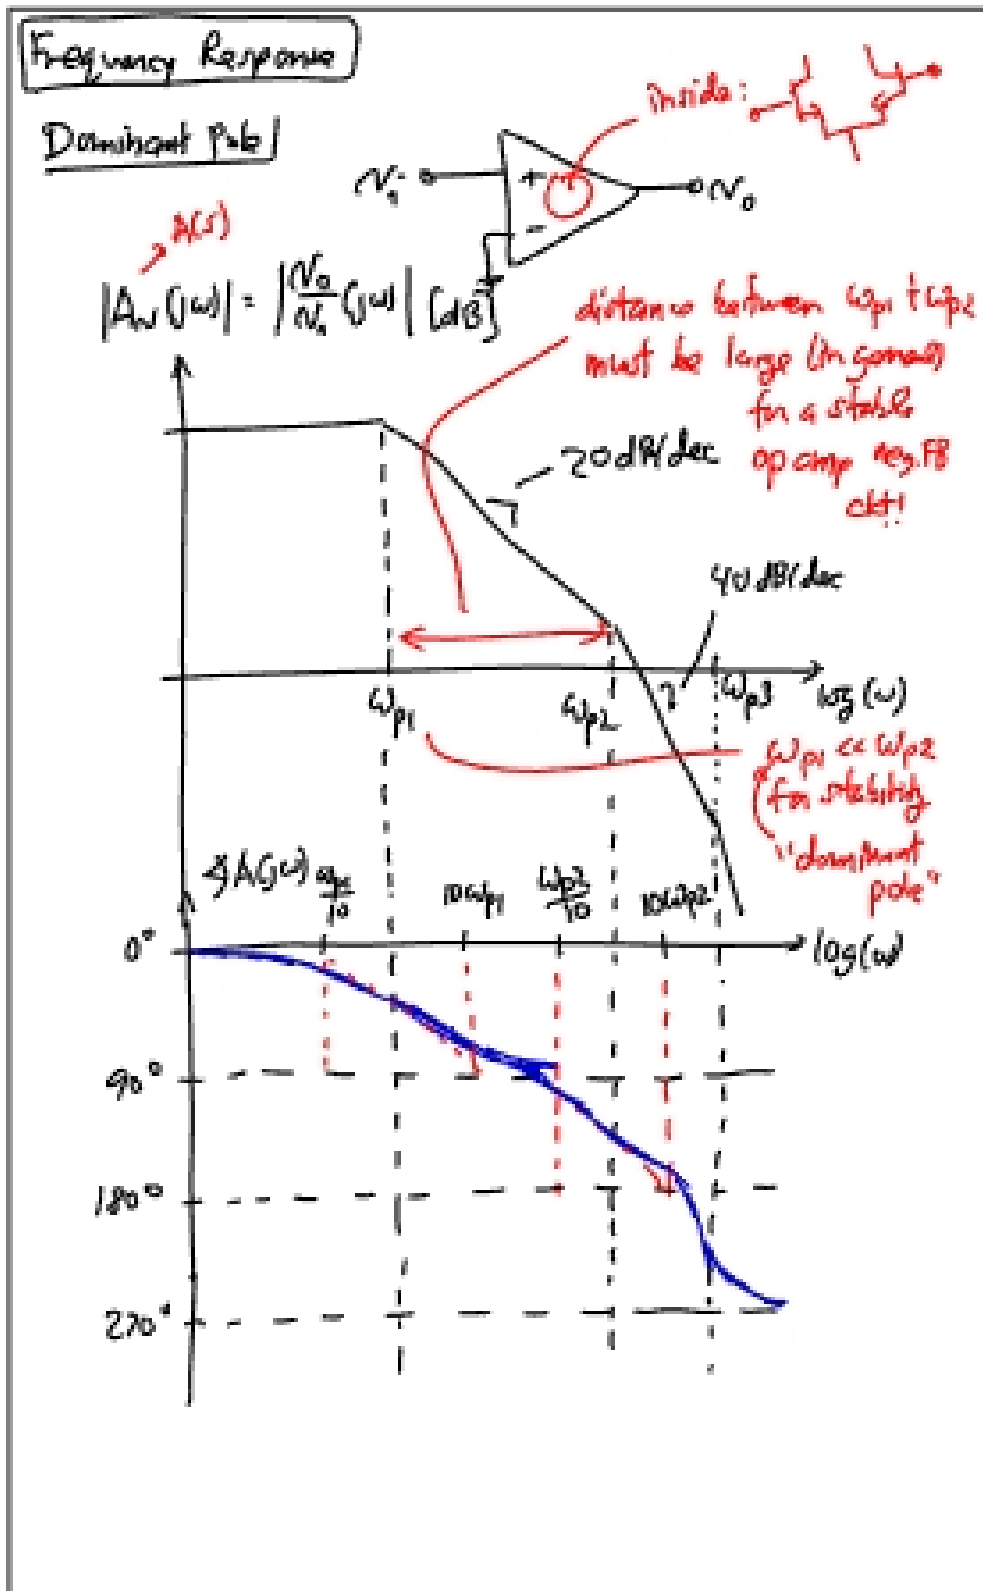 Frequency Response
Dominant Pole
inside:
+
-
A(s)
|Av(jω)| = |vo/vi (jω)| [dB]
distance between ωp1 + ωp2
must be large (in general)
for a stable
op amp neg. FB
ckt!
-20dB/dec
40dB/dec
ωp1
ωp2
ωp3
log(ω)
ωp1 << ωp2
for stability
"dominant
pole"
∡A(jω)
ωp1/10
10ωp1
ωp2/10
10ωp2
0°
log(ω)
90°
180°
270°